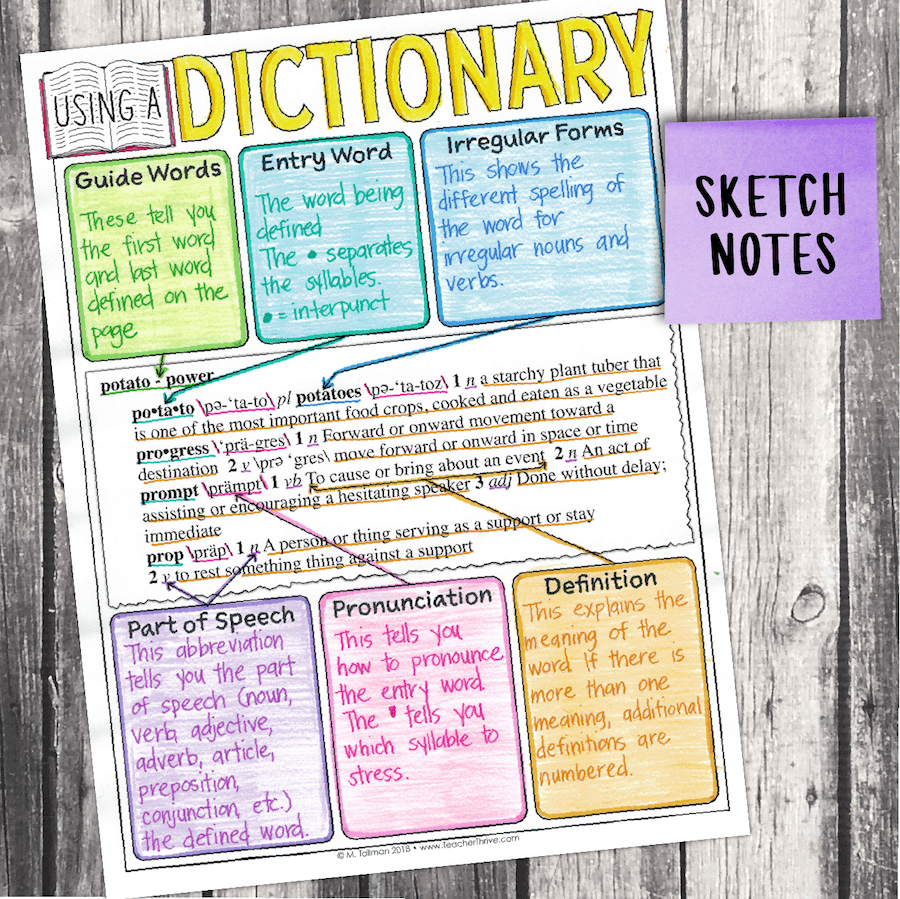 USING A DICTIONARY
SKETCH
NOTES
Guide Words
These tell you
the first word
and last word
defined on the
page.
Entry Word
The word being
defined
The • separates
the syllables.
• = interpunct
Irregular Forms
This shows the
different spelling of
the word for
irregular nouns and
verbs.
potato - power
po•ta•to \pə-‘ta-to\ pl potatoes \pə-‘ta-toz\ 1 n a starchy plant tuber that
is one of the most important food crops, cooked and eaten as a vegetable
pro•gress \‘prä-gres\ 1 n Forward or onward movement toward a
destination 2 v \prə ‘gres\ move forward or onward in space or time
prompt \prämpt\ 1 vb To cause or bring about an event 2 n An act of
assisting or encouraging a hesitating speaker 3 adj Done without delay;
immediate
prop \präp\ 1 n A person or thing serving as a support or stay
2 v to rest something thing against a support
Part of Speech
This abbreviation
tells you the part
of speech (noun,
verb, adjective,
adverb, article,
preposition,
conjunction, etc.)
the defined word.
Pronunciation
This tells you
how to pronounce
the entry word.
The ' tells you
which syllable to
stress.
Definition
This explains the
meaning of the
word. If there is
more than one
meaning, additional
definitions are
numbered.
© M. Tallman 2018 • www.TeacherThrive.com